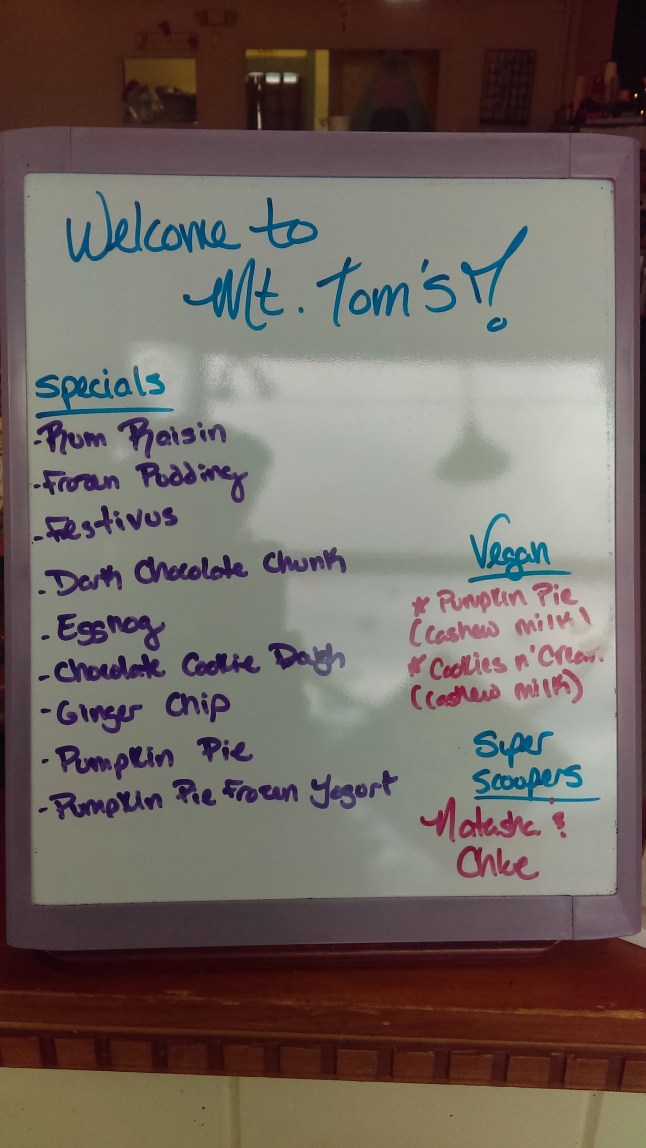 Welcome to
Mt. Tom's!
Specials
- Rum Raisin
- Frozen Pudding
- Festivus
- Dark Chocolate Chunk
- Eggnog
- Chocolate Cookie Dough
- Ginger Chip
- Pumpkin Pie
- Pumpkin Pie Frozen Yogurt
Vegan
* Pumpkin Pie
(cashew milk)
* Cookies n' Cream
(cashew milk)
Super
Scoopers
Natasha &
Chloe